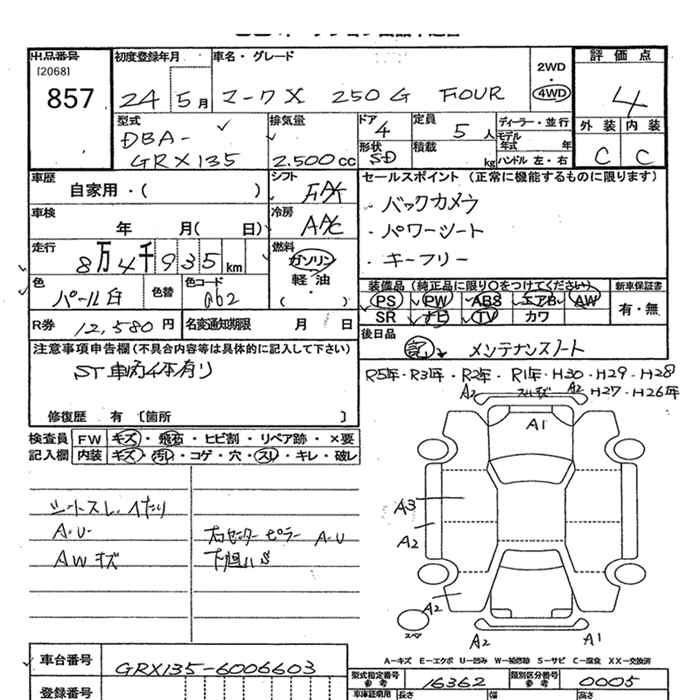 出品番号
[2068]
857
初度登録年月
24 5月
車名・グレード
マークX 250G FOUR
2WD
・
4WD
評価点
4
外装 内装
C C
型式
DBA-
GRX135
排気量
2.500cc
ドア
4
形状
SD
定員
5人
積載
kg
ディーラー・並行
モデル
年式 年
ハンドル 左・右
車歴
自家用・( )
シフト
FAT
セールスポイント (正常に機能するものに限ります)
・バックカメラ
・パワーシート
・キーフリー
車検
年 月( 日)
冷房
A/C
走行
8万4千935km
燃料
ガソリン
軽油
色
パール白
色替
色コード
062
装備品 (純正品に限り○をつけてください)
PS PW ABS エアB AW
SR ナビ TV カワ
新車保証書
有・無
R券 12,580円
名変通知期限 月 日
後日品
記 メンテナンスノート
注意事項申告欄(不具合内容等は具体的に記入して下さい)
ST車内4本有り
修復歴 有 [箇所 ]
R5年・R3年・R2年・R1年・H30・H29・H28
H27・H26年
検査員
記入欄
FW キズ・飛石・ヒビ割・リペア跡・×要
内装 キズ・汚れ・コゲ・穴・スレ・キレ・破レ
シートスレ、へたり
A・U
AWキズ
右センターピラー A・U
下廻りS
A2 スレキズ A2
A1
A3
A2
A2
スペア
A2 A1
A-キズ E-エクボ U-凹み W-補修跡 S-サビ C-腐食 XX-交換済
車台番号
GRX135-6006603
登録番号
型式指定番号
参考
16362
類別区分番号
参考
0005
車庫証明用 長さ 幅 高さ